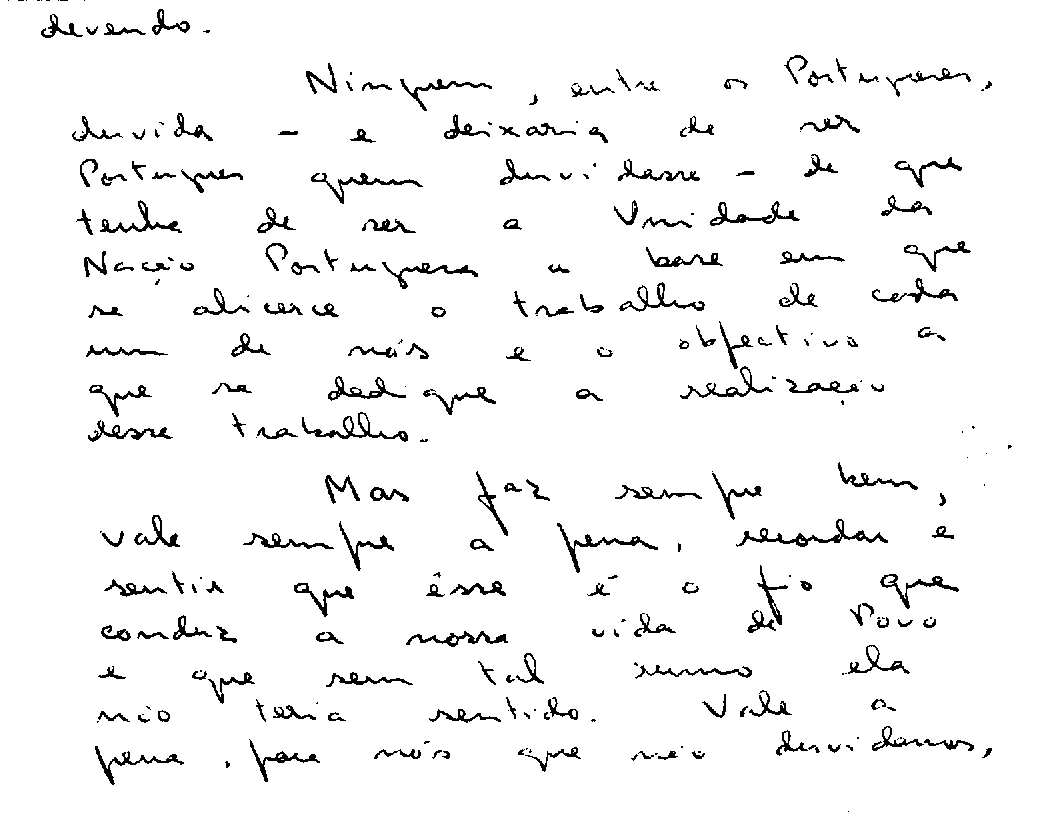 devendo.
Ninguem, entre os Portugueses,
duvida - e deixaria de ser
Portugues quem duvidasse - de que
tenha de ser a Unidade da
Nação Portuguesa a base em que
se alicerce o trabalho de cada
um de nós e o objectivo a
que se dedique a realização
desse trabalho.
Mas faz sempre bem,
vale sempre a pena, recordar e
sentir que êsse é o fio que
conduz a nossa vida de Povo
e que sem tal rumo ela
não teria sentido. Vale a
pena, para nós que não duvidamos,